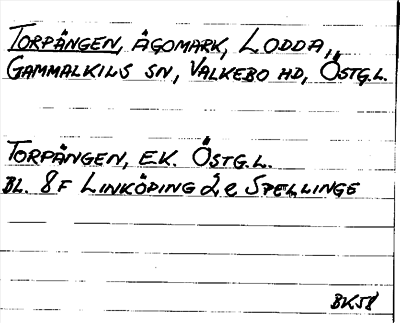 TORPÄNGEN, ÄGOMARK, LODDA,
GAMMALKILS SN, VALKEBO HD, ÖSTG.L.
TORPÄNGEN, E.K. ÖSTG.L.
BL. 8F LINKÖPING 2e SPELLINGE
BK58